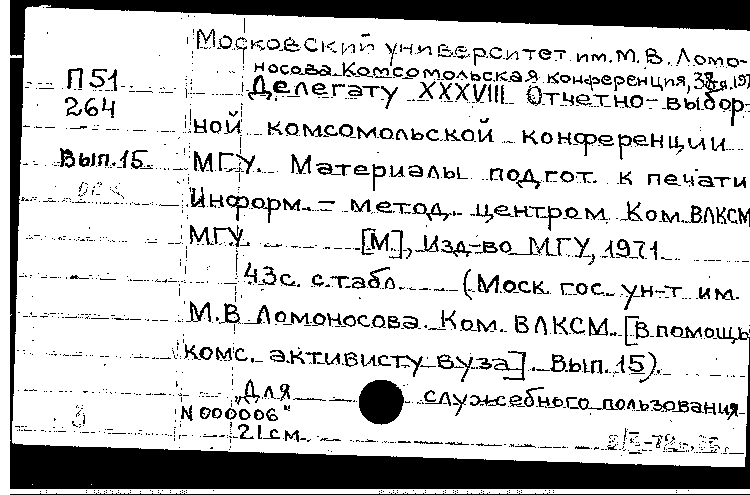 Московский университет им. М. В. Ломо-
носова. Комсомольская конференция, 38-я, 197
П51
264
Делегату XXXVIII Отчетно-выбор-
ной комсомольской конференции
Вып. 15.
МГУ. Материалы подгот. к печати
Информ.-метод. центром Ком. ВЛКСМ
МГУ. [М], Изд-во МГУ, 1971
43с. с табл. (Моск. гос. ун-т им.
М.В Ломоносова. Ком. ВЛКСМ. [В помощь
комс. активисту вуза]. Вып. 15).
„Для служебного пользования
N 000006"
21см.
3